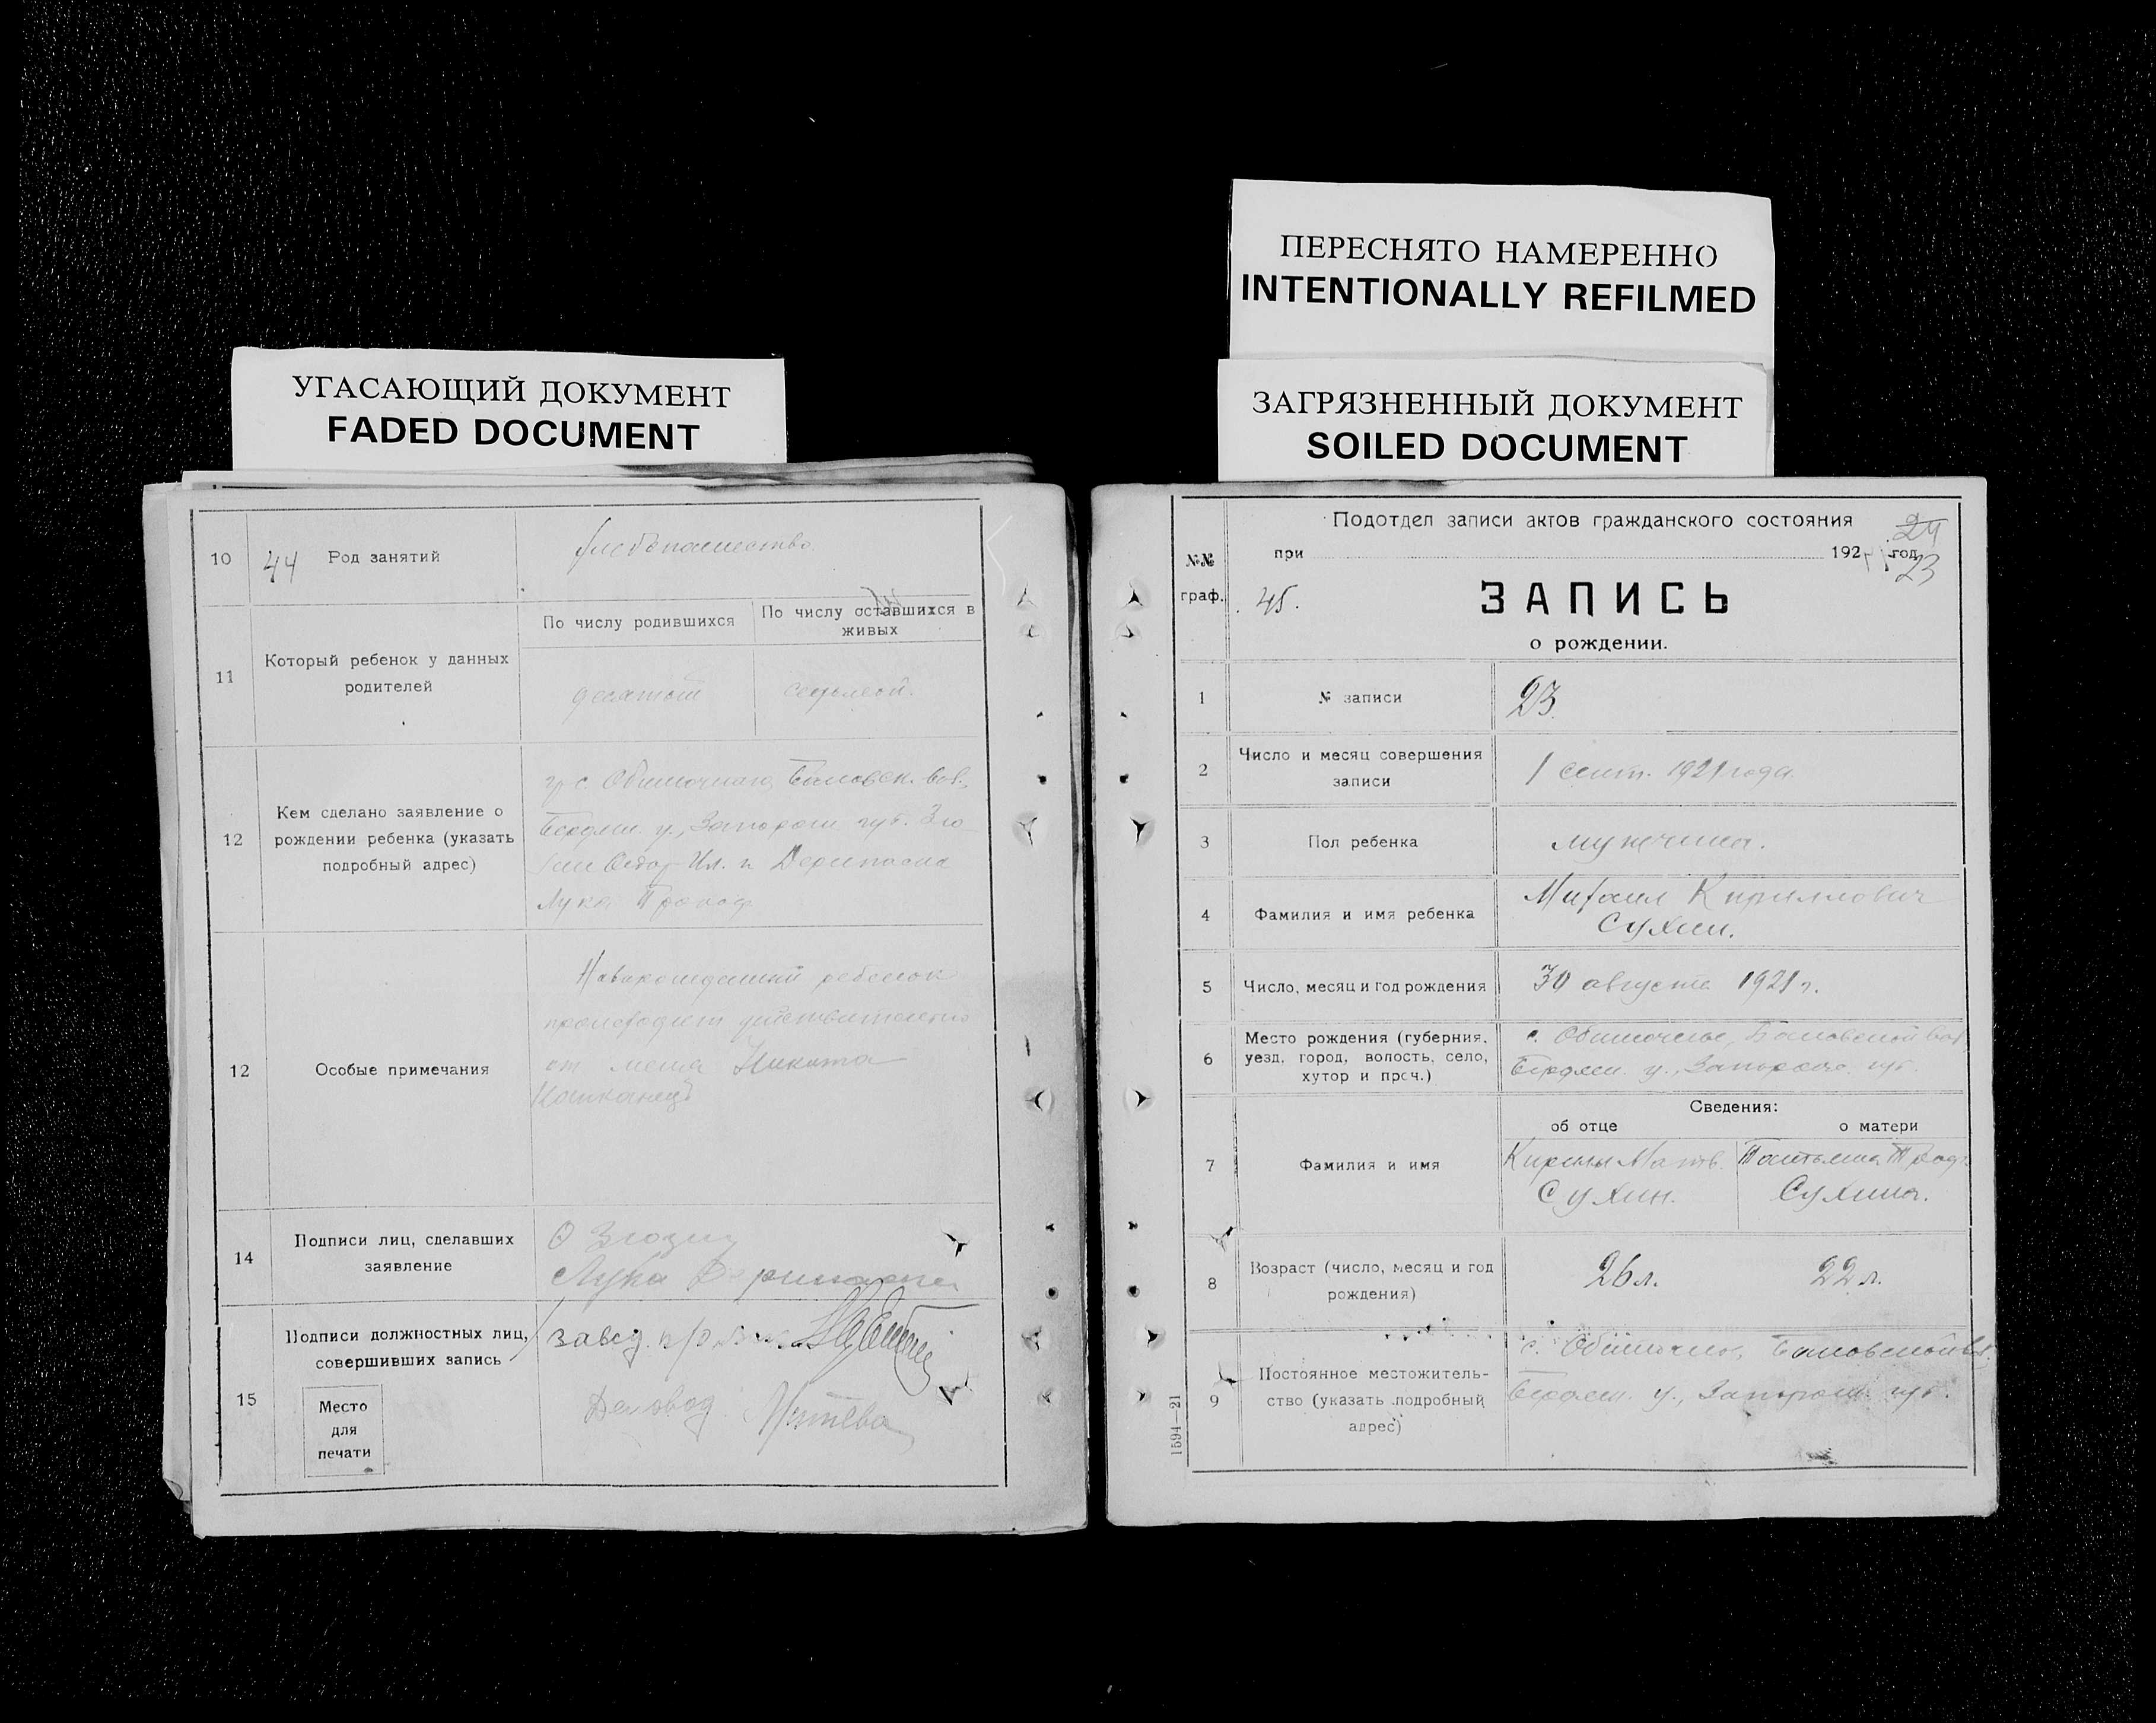 УГАСАЮЩИЙ ДОКУМЕНТ
FADED DOCUMENT
10
44
Род занятий
хлебопашество.
11
Который ребенок у данных
родителей
По числу родившихся
По числу оставшихся в
живых
десятый
седьмой.
12
Кем сделано заявление о
рождении ребенка (указать
подробный адрес)
гр. с. Обиточная,
Бердян. у., Запорож. губ.
Ил. и Дерипаска
Лука Прокоф
12
Особые примечания
ребенок
происходит действительно
от меня Никита
14
Подписи лиц, сделавших
заявление
Лука Дерипаска
15
Подписи должностных лиц,
совершивших запись
Место
для
печати
завед. п/о
Деловод.
ПЕРЕСНЯТО НАМЕРЕННО
INTENTIONALLY REFILMED
ЗАГРЯЗНЕННЫЙ ДОКУМЕНТ
SOILED DOCUMENT
Подотдел записи актов гражданского состояния
24
№№
граф.
при
192
год
23
45.
ЗАПИСЬ
о рождении.
1
№ записи
23
2
Число и месяц совершения
записи
1 сент. 1921 года.
3
Пол ребенка
мужчина.
4
Фамилия и имя ребенка
Михаил Кириллович
Сухин.
5
Число, месяц и год рождения
30 августа 1921 г.
6
Место рождения (губерния,
уезд, город, волость, село,
хутор и проч.)
с. Обиточное,
Бердян. у., Запорож. губ.
Сведения:
об отце
о матери
7
Фамилия и имя
Кирилл Матв.
Сухин.
Татьяна
Сухина.
8
Возраст (число, месяц и год
рождения)
26 л.
22 л.
9
Постоянное местожитель-
ство (указать подробный
адрес)
с. Обиточно,
Бердян. у., Запорож. губ.
1594—21